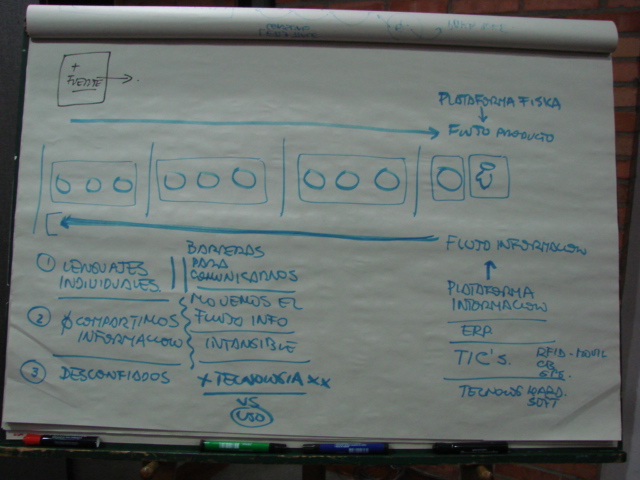 +
FUERTE
PLATAFORMA FISICA
FLUJO PRODUCTO
FLUJO INFORMACION
1 LENGUAJES
INDIVIDUALES
BARRERAS
PARA
COMUNICARNOS
2 COMPARTIMOS
INFORMACION
MOVEMOS EL
FLUJO INFO
INTANGIBLE
3 DESCONFIADOS
+ TECNOLOGIA XX
VS
USO
PLATAFORMA
INFORMACION
ERP
TIC'S.
RFID - MOVIL
CB
GPS.
HARD.
SOFT